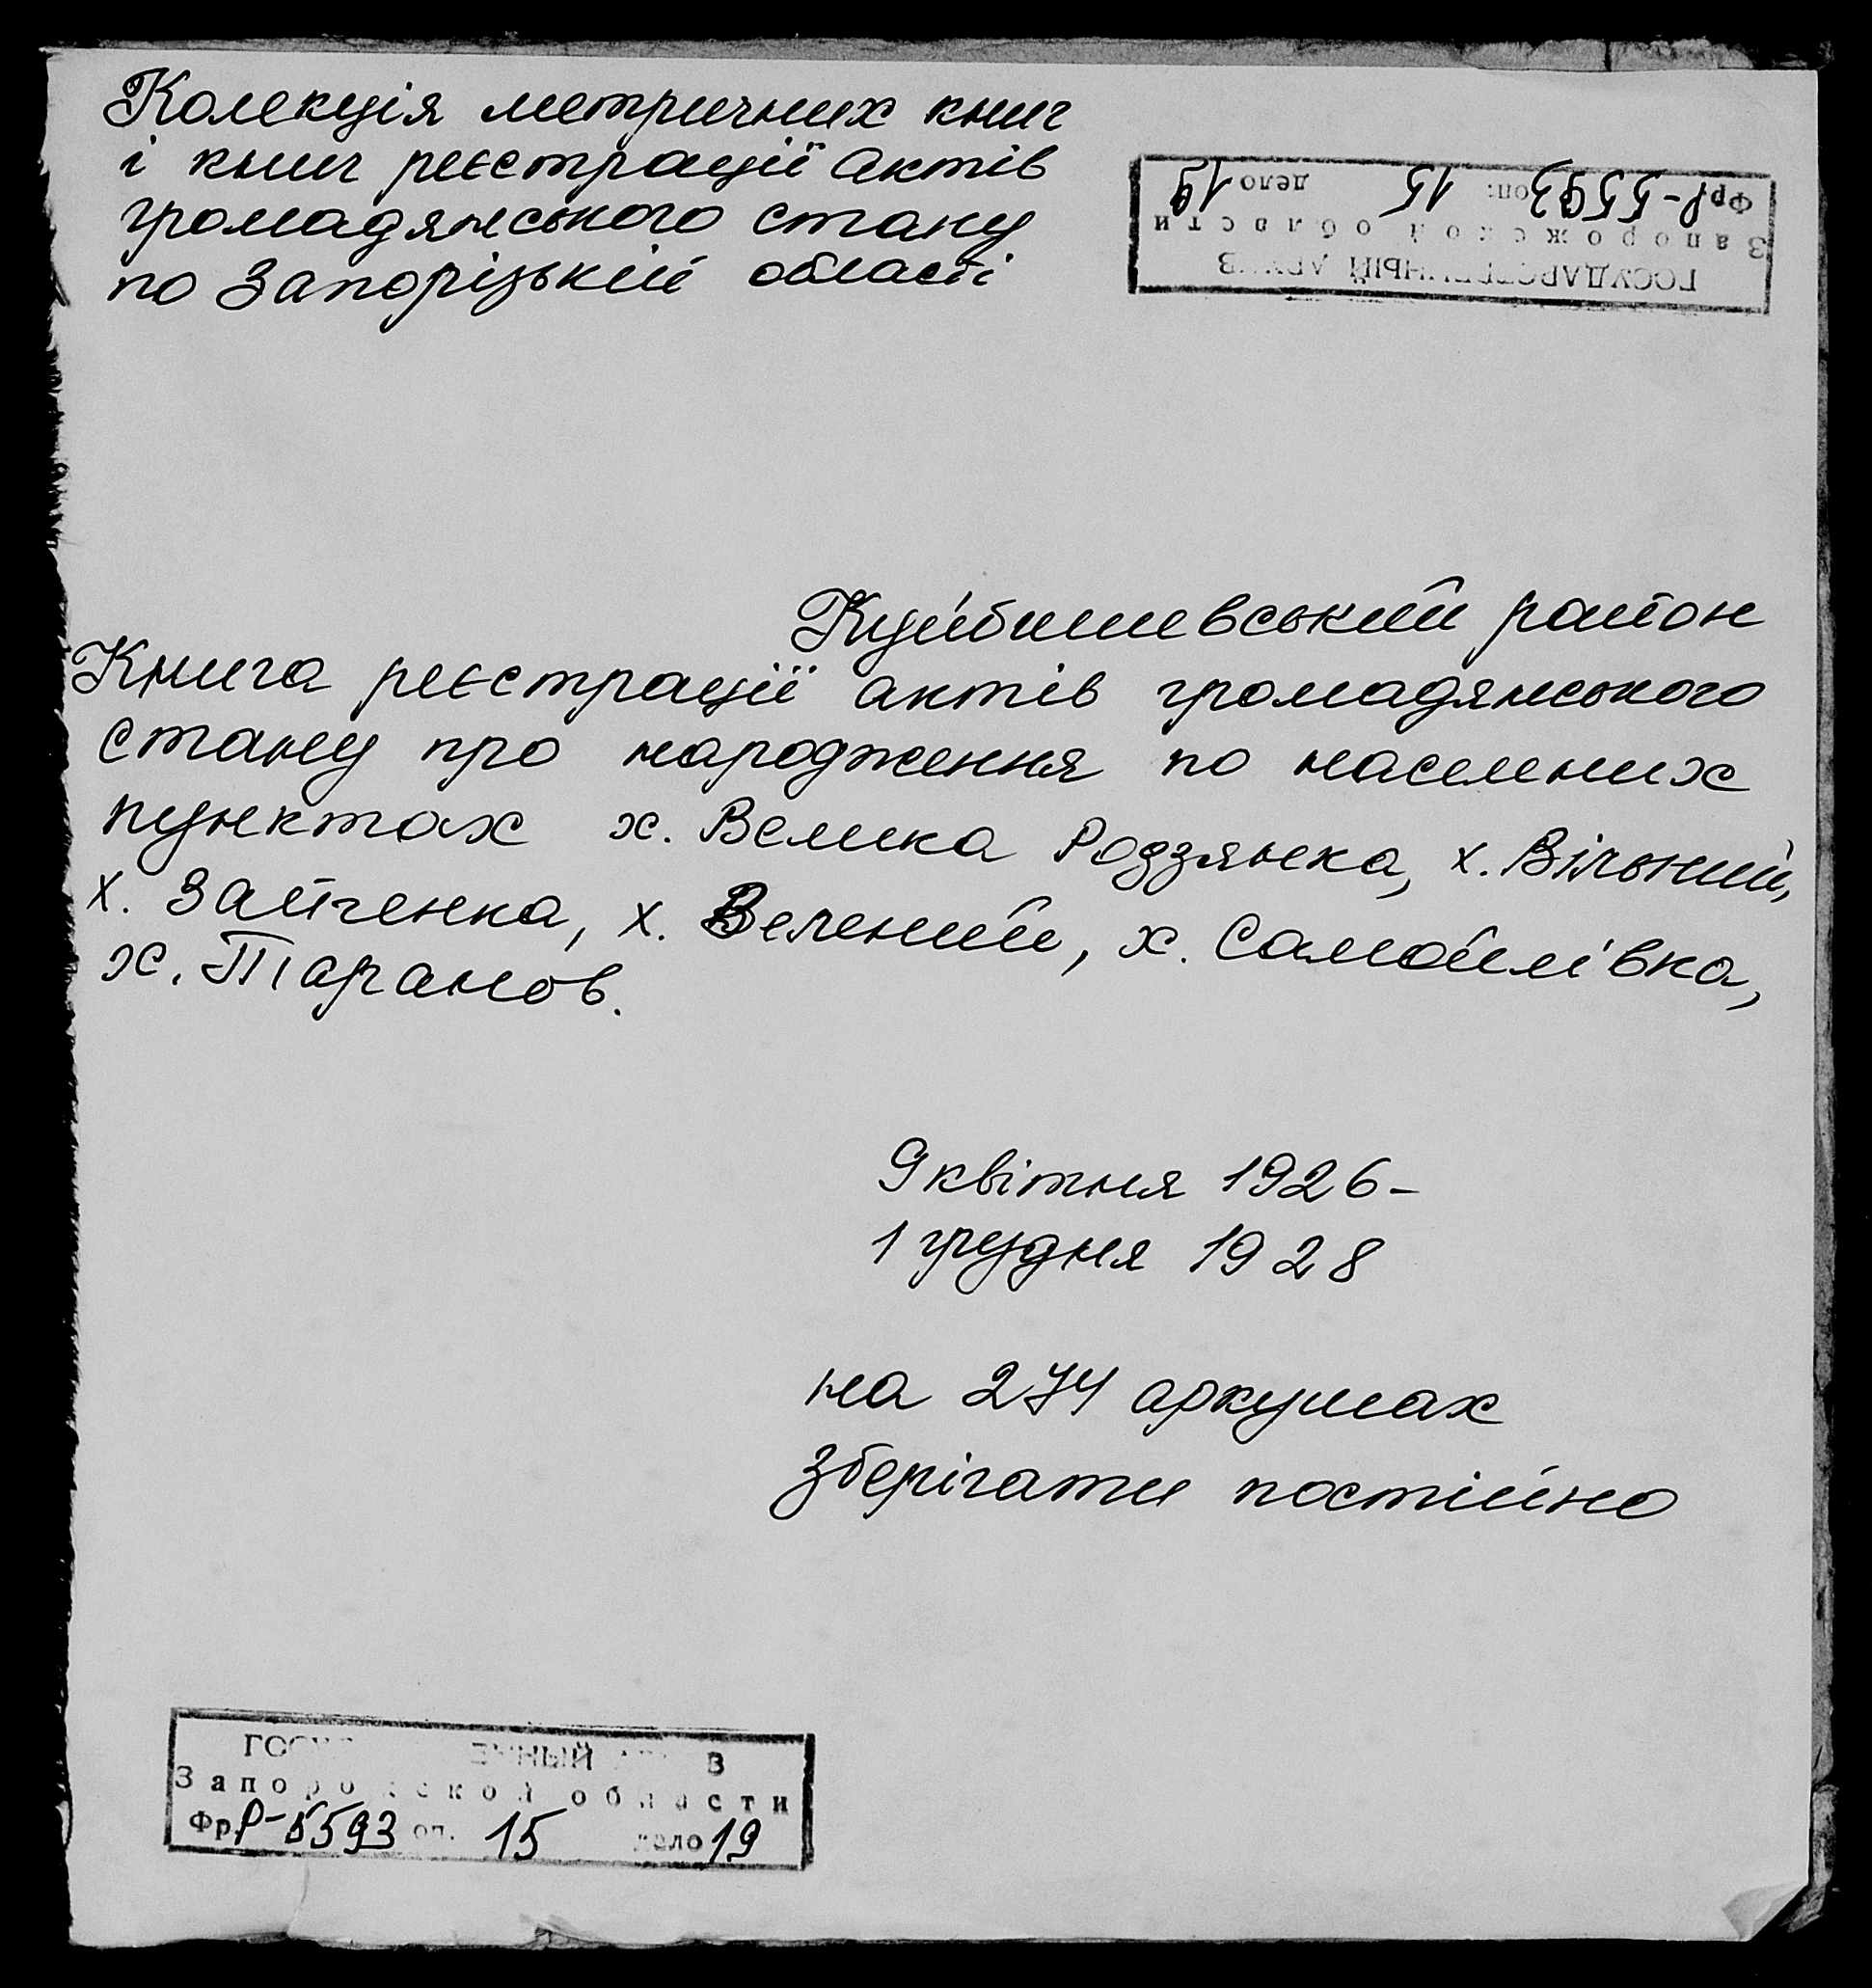 Колекція метричних книг
і книг реєстрації актів
громадянського стану
по Запорізькій області
ГОСУДАРСТВЕННЫЙ АРХИВ
Запорожской области
Фр Р-5593 оп. 15 дело 19
Куйбишевський район
Книга реєстрації актів громадянського
стану про народження по населених
пунктах х. Велика Родзянка, х. Вільний,
х. Зайченка, х. Зелений, х. Самойлівка,
х. Таранов.
9 квітня 1926 –
1 грудня 1928
на 274 аркушах
зберігати постійно
ГОСУДАРСТВЕННЫЙ АРХИВ
Запорожской области
Фр Р-5593 оп. 15 дело 19